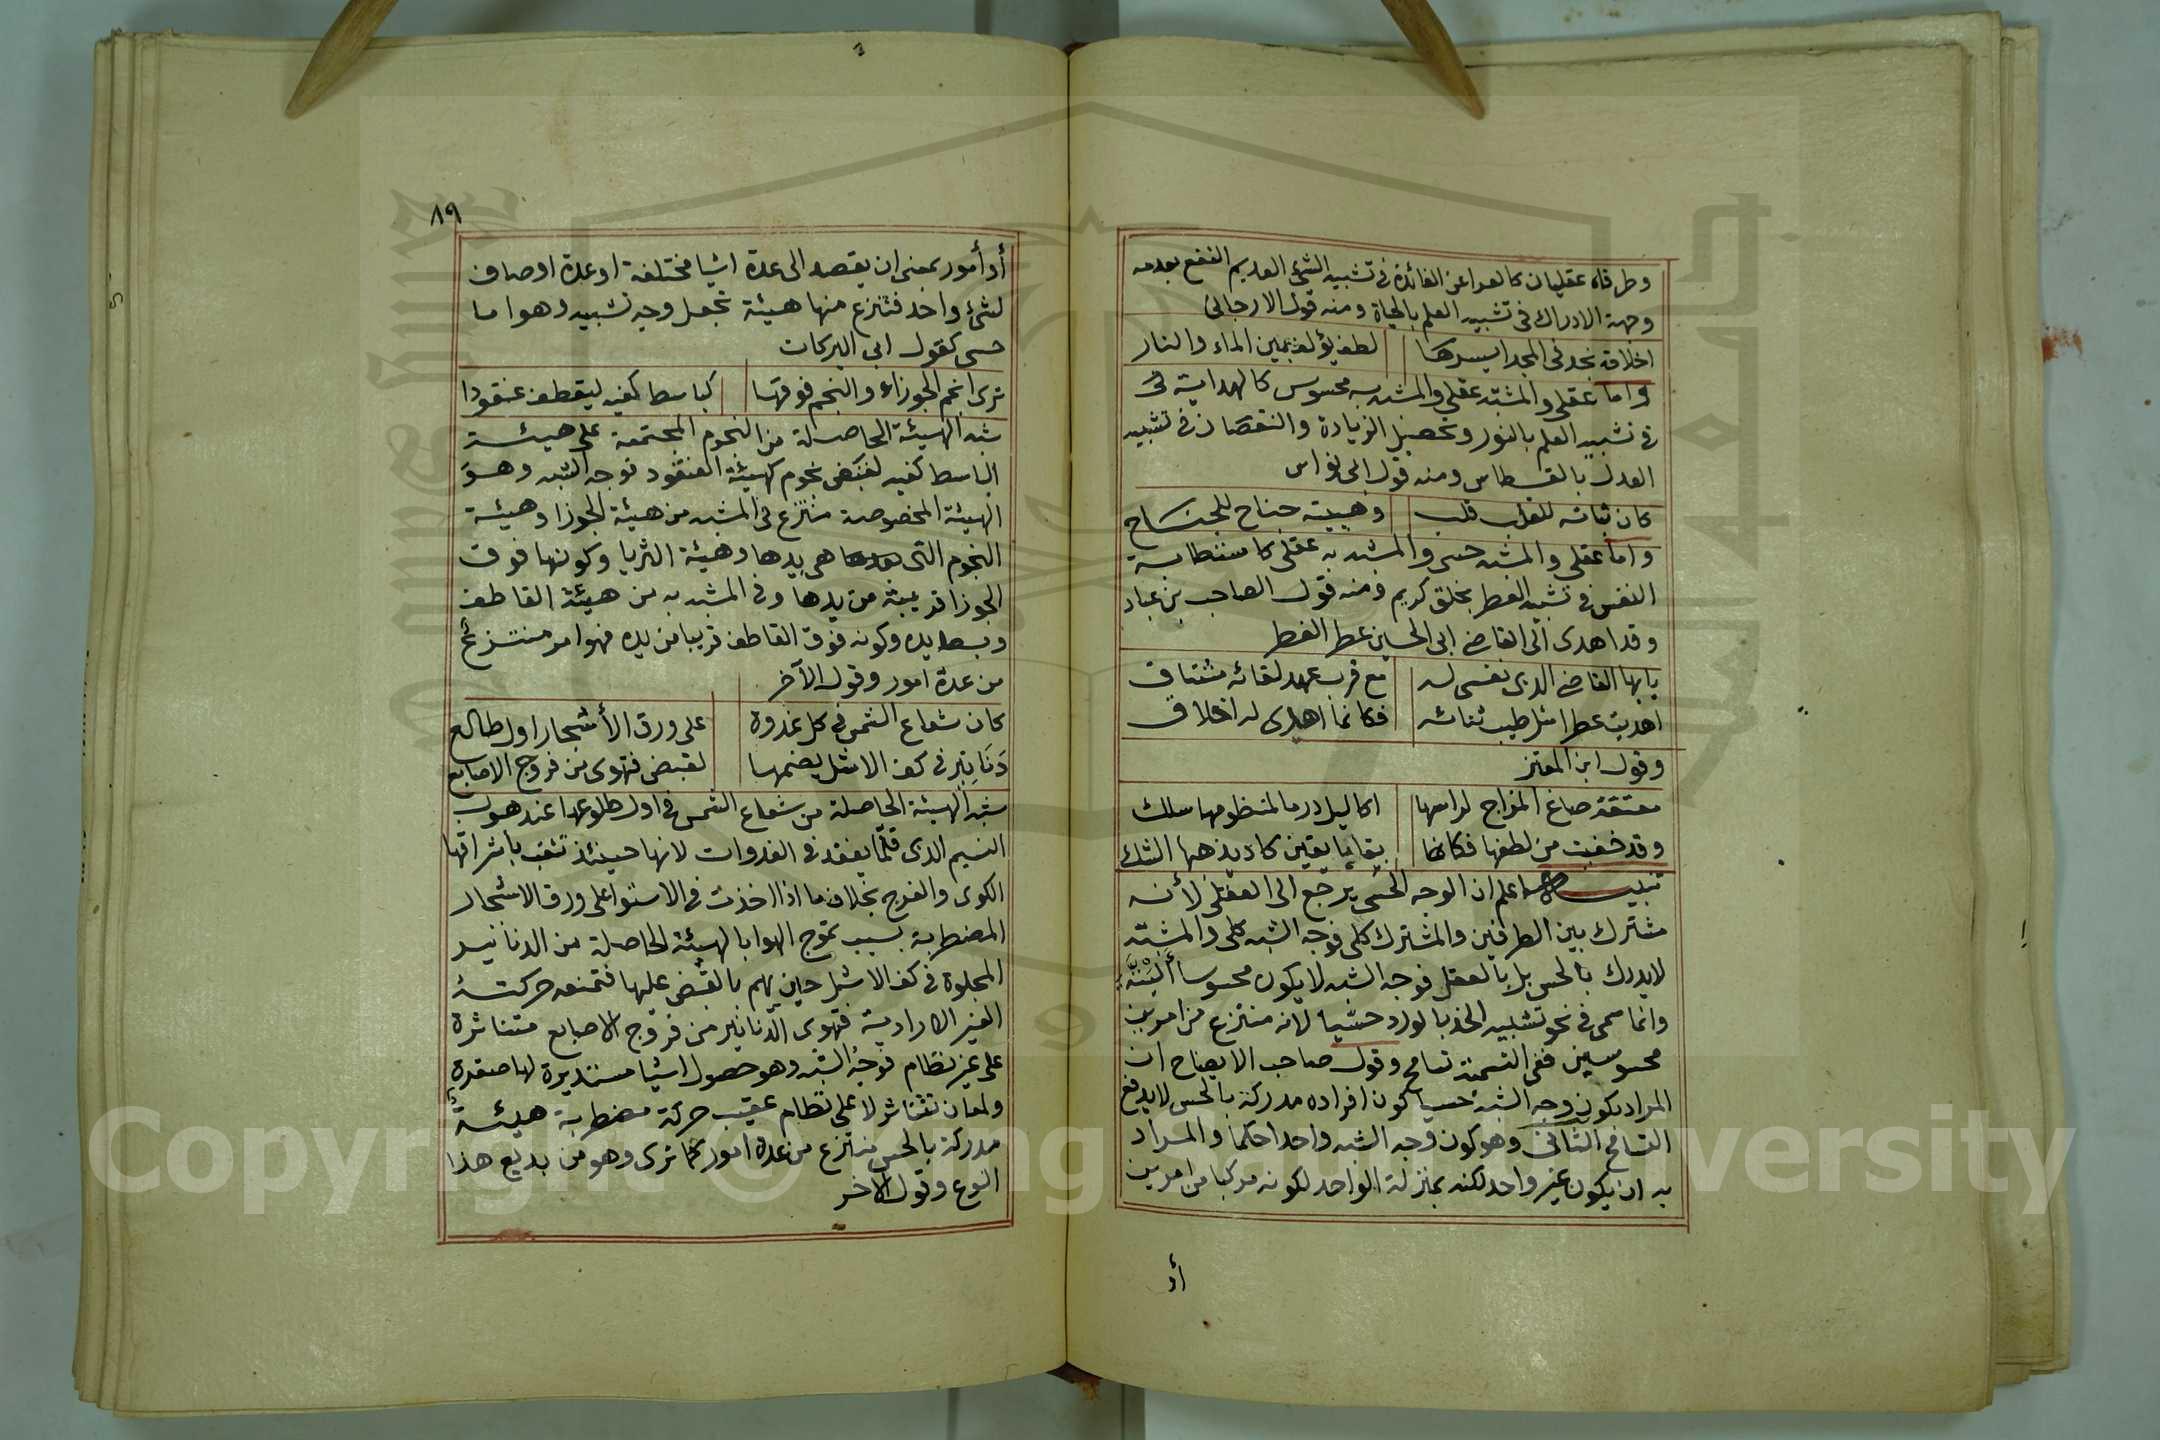 وطرفاه عقليان كالعراء عن الفائدة في تشبيه الشيء العديم النفع بعدمه
وجهة الادراك في تشبيه العلم بالحياة ومنه قول الارجاني
اخلاقه نجد في المجد ايسرها لطف يؤلف بين الماء والنار
واما عقلي والمشبه عقلي والمشبه به محسوس كالهداية في
في تشبيه العلم بالنور وتحصيل الزيادة والنقصان في تشبيه
العدل بالقسطاس ومنه قول ابى نواس
كان ثباته للقلب قلب وهيبته جناح للجناح
واما عقلي والمشبه حسى والمشبه به عقلى كاستطابة
النفس في تشبيه العطر بخلق كريم ومنه قول الصاحب بن عباد
وقد اهدى الى القاضى ابى الحسين عطر الفطر
يايها القاضى الذى نفسى له مع قرب عهد لقائه مشتاقه
اهديت عطرا مثل طيب ثنائه فكانما اهدى له اخلاقه
وقول ابن المعتز
معتقة صاغ المزاج لراسها اكاليل در ما لمنظومها سلك
وقد خفيت من لطفها فكانما بقايا يقين كاد يذهبها الشك
تنبيه اعلم ان الوجه الحسى يرجع الى العقلى لأنه
مشترك بين الطرفين والمشترك كلى فوجه الشبه كلى والمشبه
لايدرك بالحس بل بالعقل فوجه الشبه لا يكون محسوسا ألبتة
وانما سمى في نحو تشبيه الخد بالورد حسيا لانه منتزع من امرين
محسوسين ففى التسمية تسامح وقول صاحب الايضاح ان
المراد بكون وجه الشبه حسيا كون افراده مدركة بالحس لا يدفع
التسامح الثانى وهو كون وجه الشبه واحدا حكما والمراد
به ان يكون غير واحد لكنه بمنزلة الواحد لكونه مركبا من امرين
أو
٨٩
أو أمور بمعنى ان يقصد الى عدة اشيا مختلفة او عدة اوصاف
لشئ واحد فتنزع منها هيئة تجعل وجه تشبيه وهو اما
حسى كقول ابى البركات
ترى انجم الجوزاء والنجم فوقها كباسط كفيه ليقطف عنقودا
شبه الهيئة الحاصلة من النجوم المجتمعة على هيئة
الباسط كفيه لقبض نجوم كهيئة العنقود فوجه الشبه وهو
الهيئة المخصوصة منتزع فى المشبه من هيئة الجوزا وهيئة
النجوم التى هى يدها وهيئة الثريا وكونها فوق
الجوزا قريبة من يدها وفى المشبه به من هيئة القاطف
وبسط يده وكونه فوق القاطف قريبا من يده فهو امر منتزع
من عدة امور وقول الآخر
كان شعاع الشمس فى كل غدوة على ورق الأشجار اول طالع
دنانير فى كف الاشل يضمها لقبض فتهوى من فروج الاصابع
شبه الهيئة الحاصلة من شعاع الشمس فى اول طلوعها عند هبوب
النسيم الذى قلما يفقد فى الغدوات لانها حينئذ تثقب باشراقها
الكوى والفرج بخلاف ما اذا اخذت فى الاستوا على ورق الاشجار
المضطربة بسبب تموج الهوا بالهيئة الحاصلة من الدنانير
المجلوة فى كف الاشل حين يهم بالقبض عليها فتمنعه حركته
الغير الارادية فتهوى الدنانير من فروج الاصابع متناثرة
على غير نظام فوجه الشبه وهو حصول اشيا مستديرة لها صفرة
ولمعان تتناثر لا على نظام عقيب حركة مضطربة هيئة
مدركة بالحس منتزع من عدة امور كما ترى وهو من بديع هذا
النوع وقول الآخر
Copyright © King Saud University